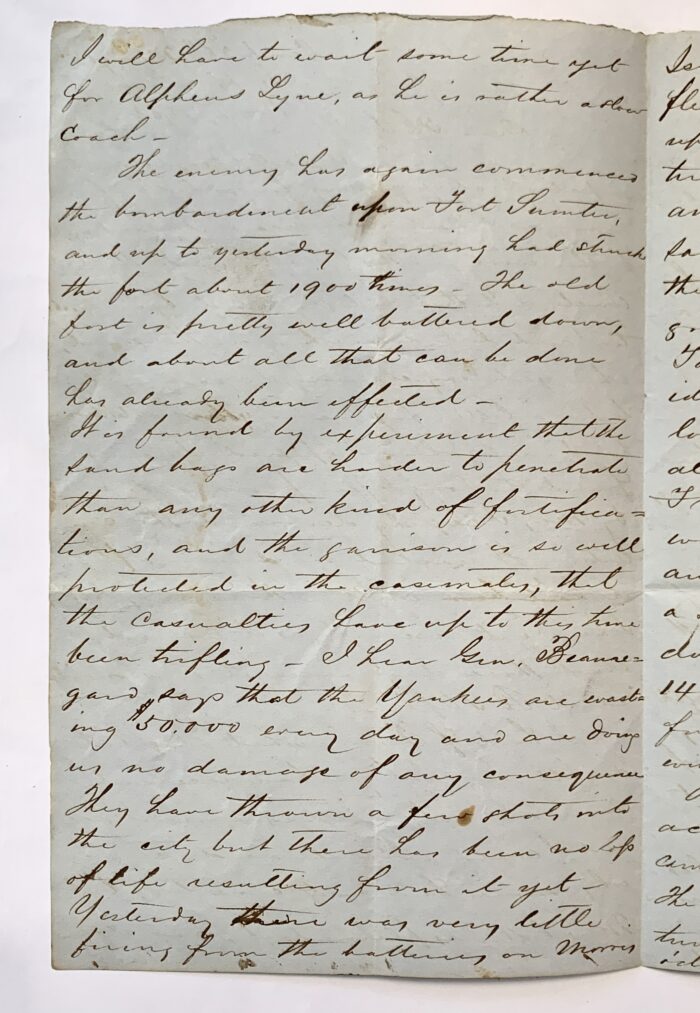 I will have to wait some time yet
for Alpheus Lyne, as he is rather a slow
coach -
The enemy has again commenced
the bombardment upon Fort Sumter,
and up to yesterday morning had struck
the fort about 1900 times - The old
fort is pretty well battered down,
and about all that can be done
has already been effected -
It is found by experiment that the
sand bags are harder to penetrate
than any other kind of fortifica=
tions, and the garrison is so well
protected in the casemates, that
the casualties have up to this time
been trifling - I hear Gen. Beaure=
gard says that the Yankees are wast
ing $50.000 every day and are doing
us no damage of any consequence
They have thrown a few shots into
the city but there has been no loss
of life resulting from it yet -
Yesterday there was very little
firing from the batteries on Morris
Is
fl
up
tu
an
sa
the
8
id
lo
al
w
an
a
do
14
fo
ac
cam
The
tu